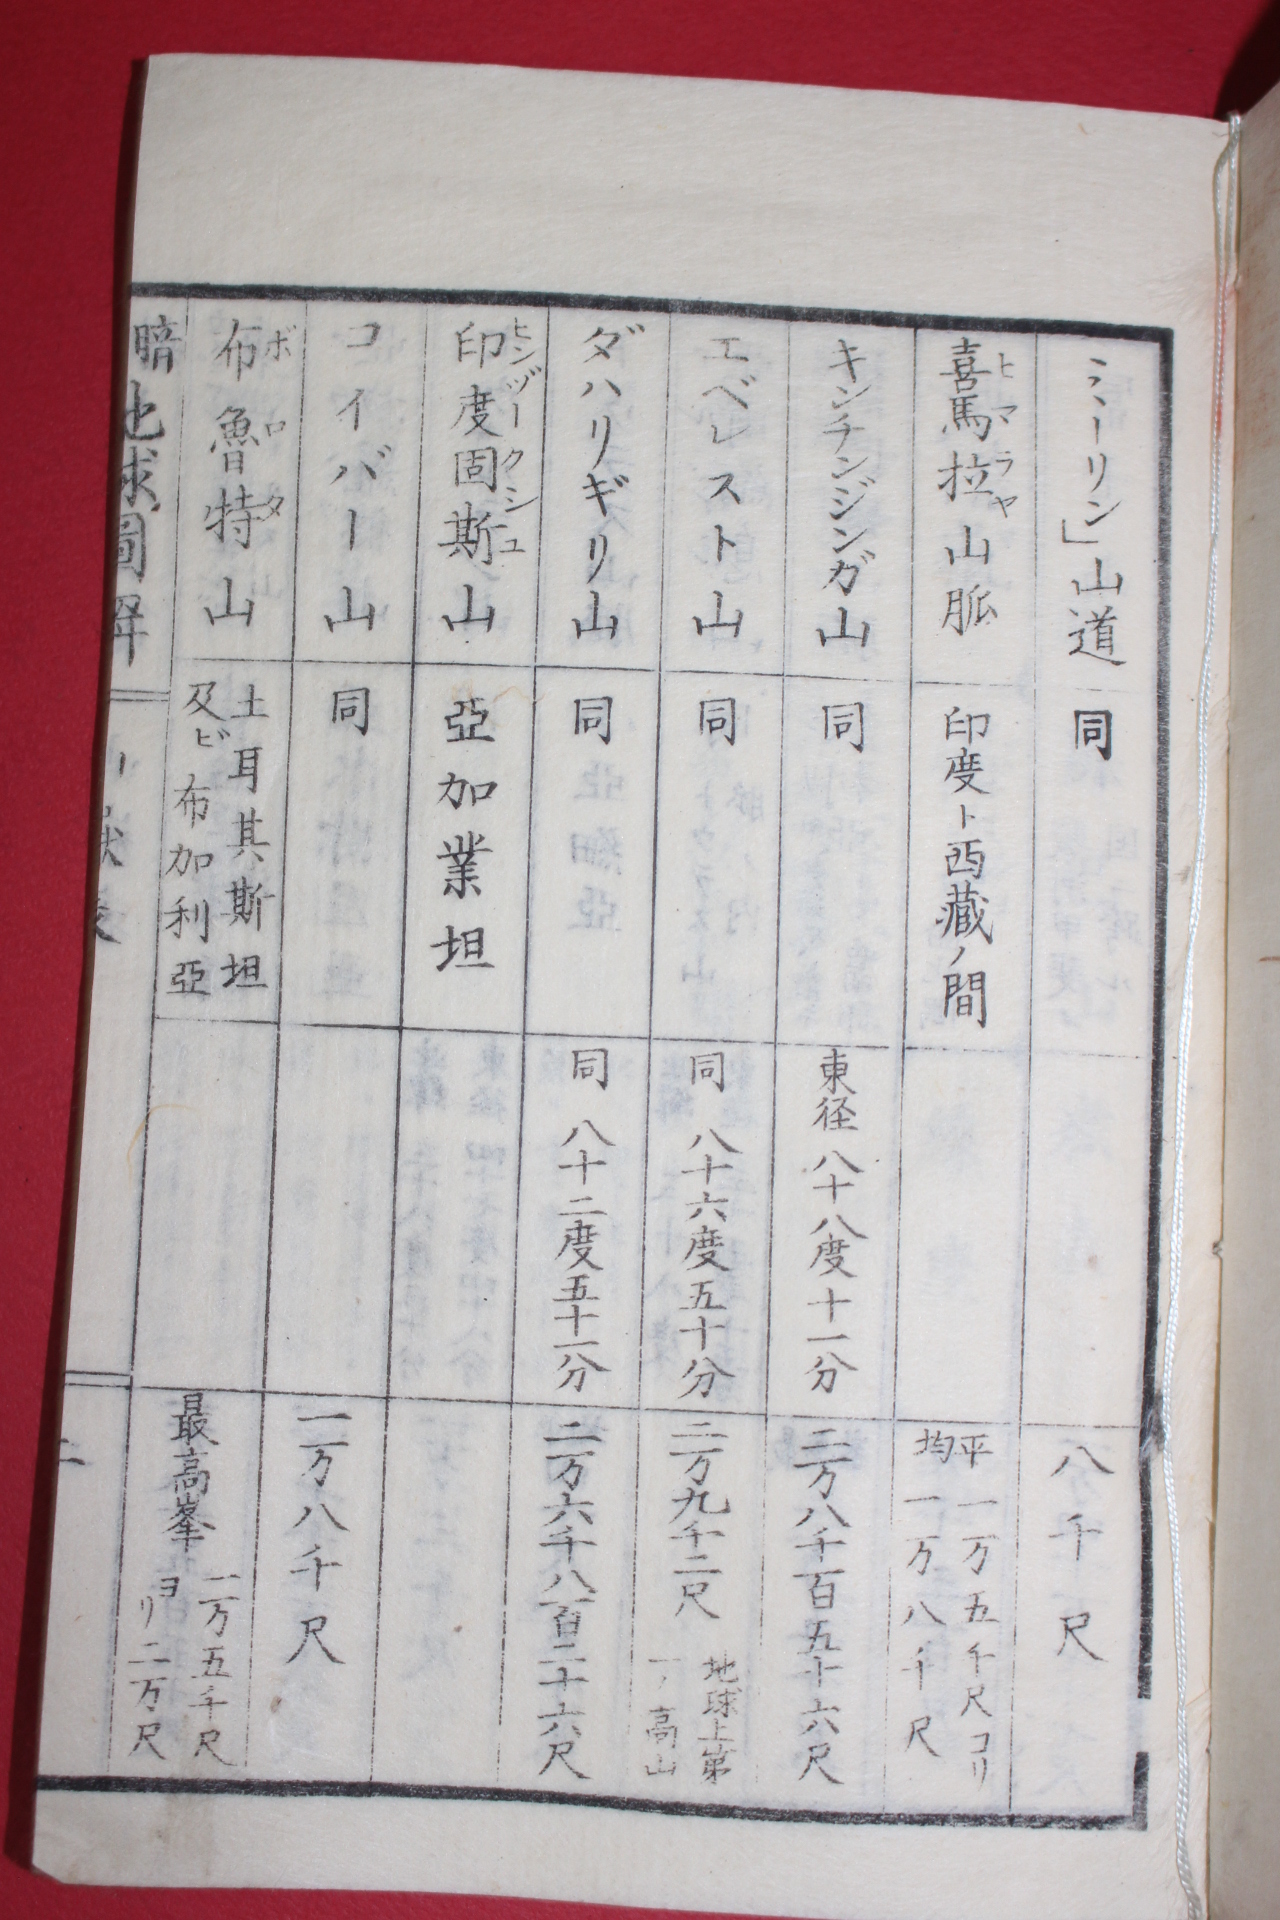 ミヽーリン」山道 同 八千尺
喜馬拉山脈 ヒマラヤ 印度ト西藏ノ間 平均 一万五千尺ヨリ一万八千尺
キンチンジンガ山 同 東径 八十八度十一分 二万八千百五十六尺
エベレスト山 同 同 八十六度五十分 二万九千二尺 地球上第一ノ高山
ダハリギリ山 同 同 八十二度五十一分 二万六千八百二十六尺
印度固斯山 ヒンヅークシュ 亞加業坦
コイバー山 同 一万八千尺
布魯特山 ボロタ 土耳其斯坦及ビ布加利亞 最高峯 一万五千尺ヨリ二万尺
暗地球圖解